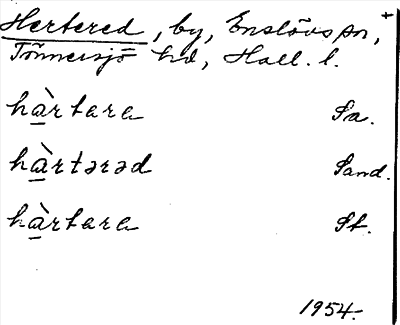 Hertered, by, Enslövs sn, +
Tönnersjö hd, Hall. l.
hà̱rtara Sa.
hà̱rtərəd Sand.
hà̱rtara St.
1954.